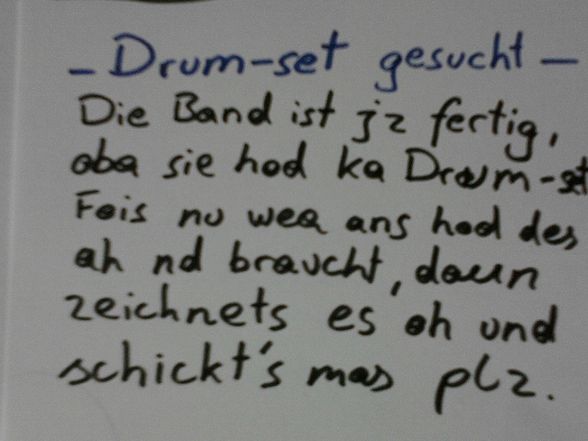 - Drum-set gesucht -
Die Band ist jz fertig,
oba sie hod ka Drum-set
Fois nu wea ans hod des
eh nd braucht, daun
zeichnets es oh und
schickt's mas plz.